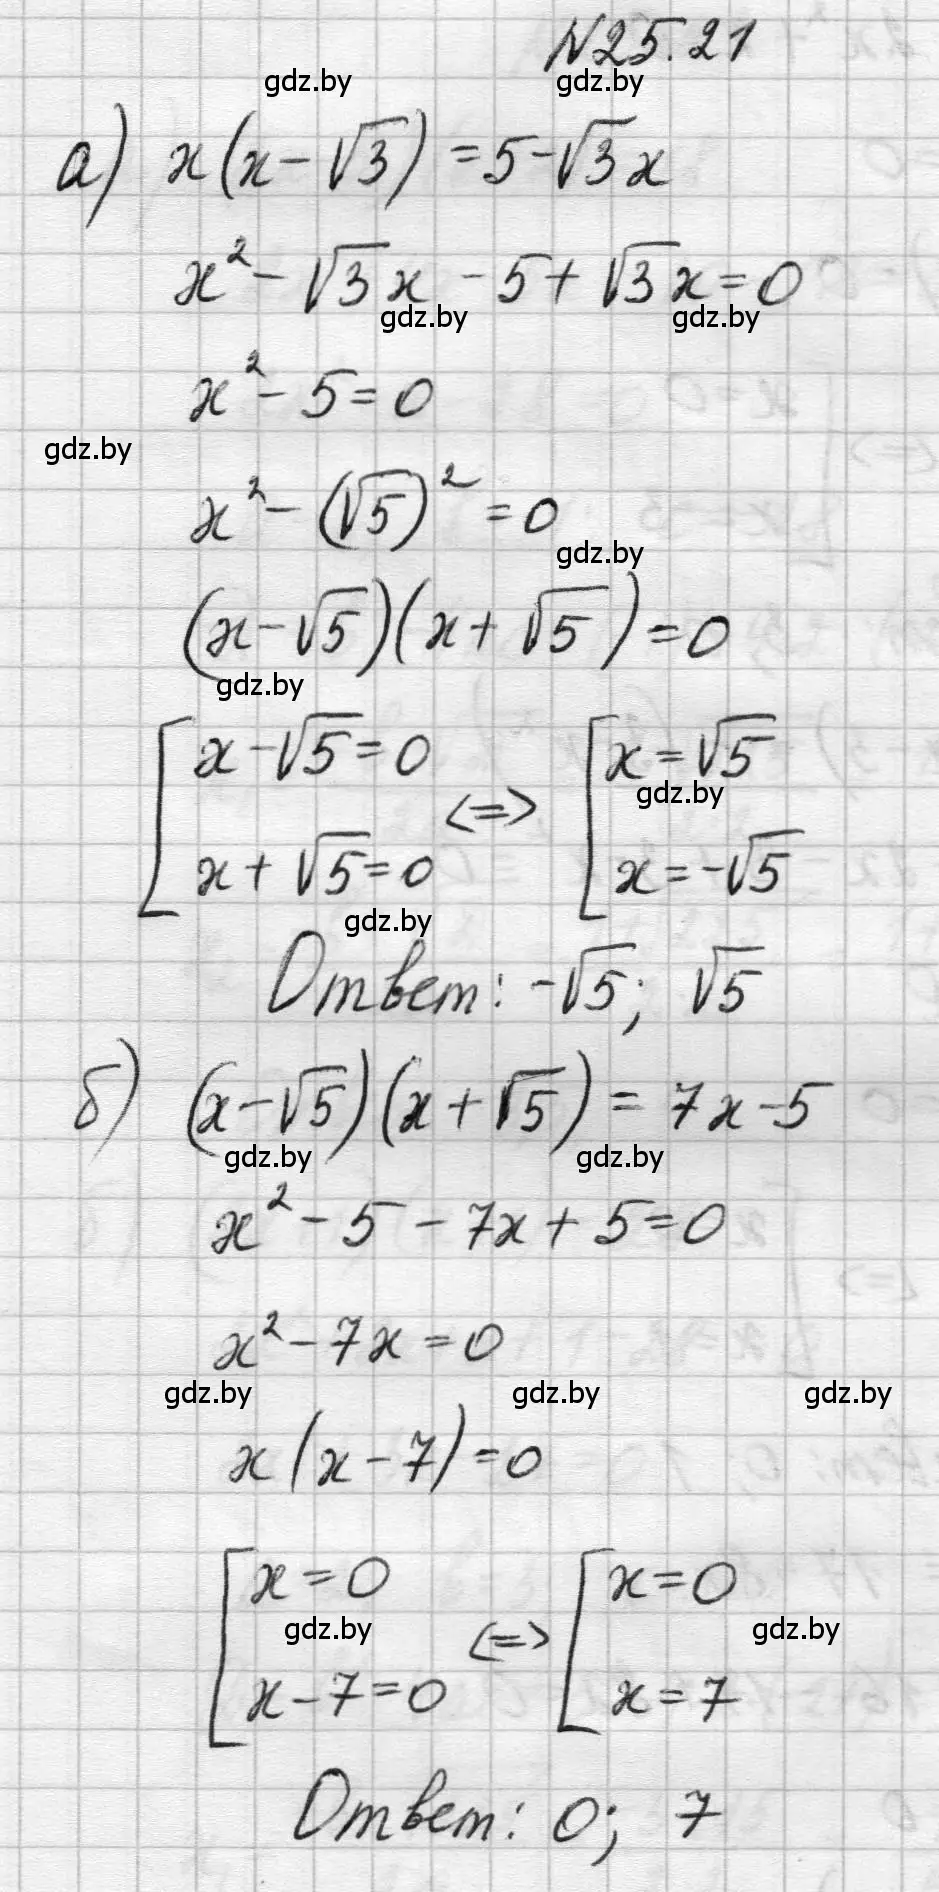 N25.21
gdz.by gdz.by
а) x(x-√3) = 5-√3x
x² - √3x - 5 + √3x = 0
gdz.by gdz.by
x² - 5 = 0
gdz.by
x² - (√5)² = 0
gdz.by
(x-√5)(x+√5) = 0
gdz.by
[x-√5=0 <=> [x=√5
gdz.by
x+√5=0 x=-√5
gdz.by
Ответ: -√5; √5
б) (x-√5)(x+√5) = 7x-5
gdz.by gdz.by
x² - 5 - 7x + 5 = 0
x² - 7x = 0
gdz.by gdz.by gdz.by
x(x-7) = 0
[x=0 <=> [x=0
gdz.by gdz.by
x-7=0 x=7
Ответ: 0; 7